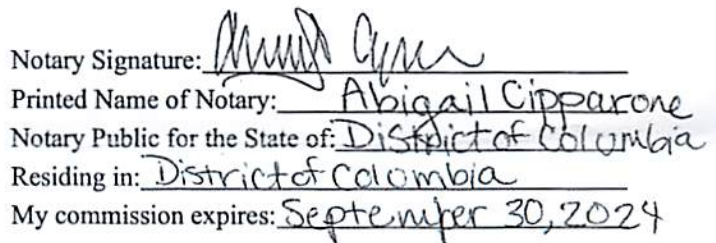 Notary Signature:
Printed Name of Notary: Abigail Cipparone
Notary Public for the State of: District of Columbia
Residing in: District of Colombia
My commission expires: September 30, 2024